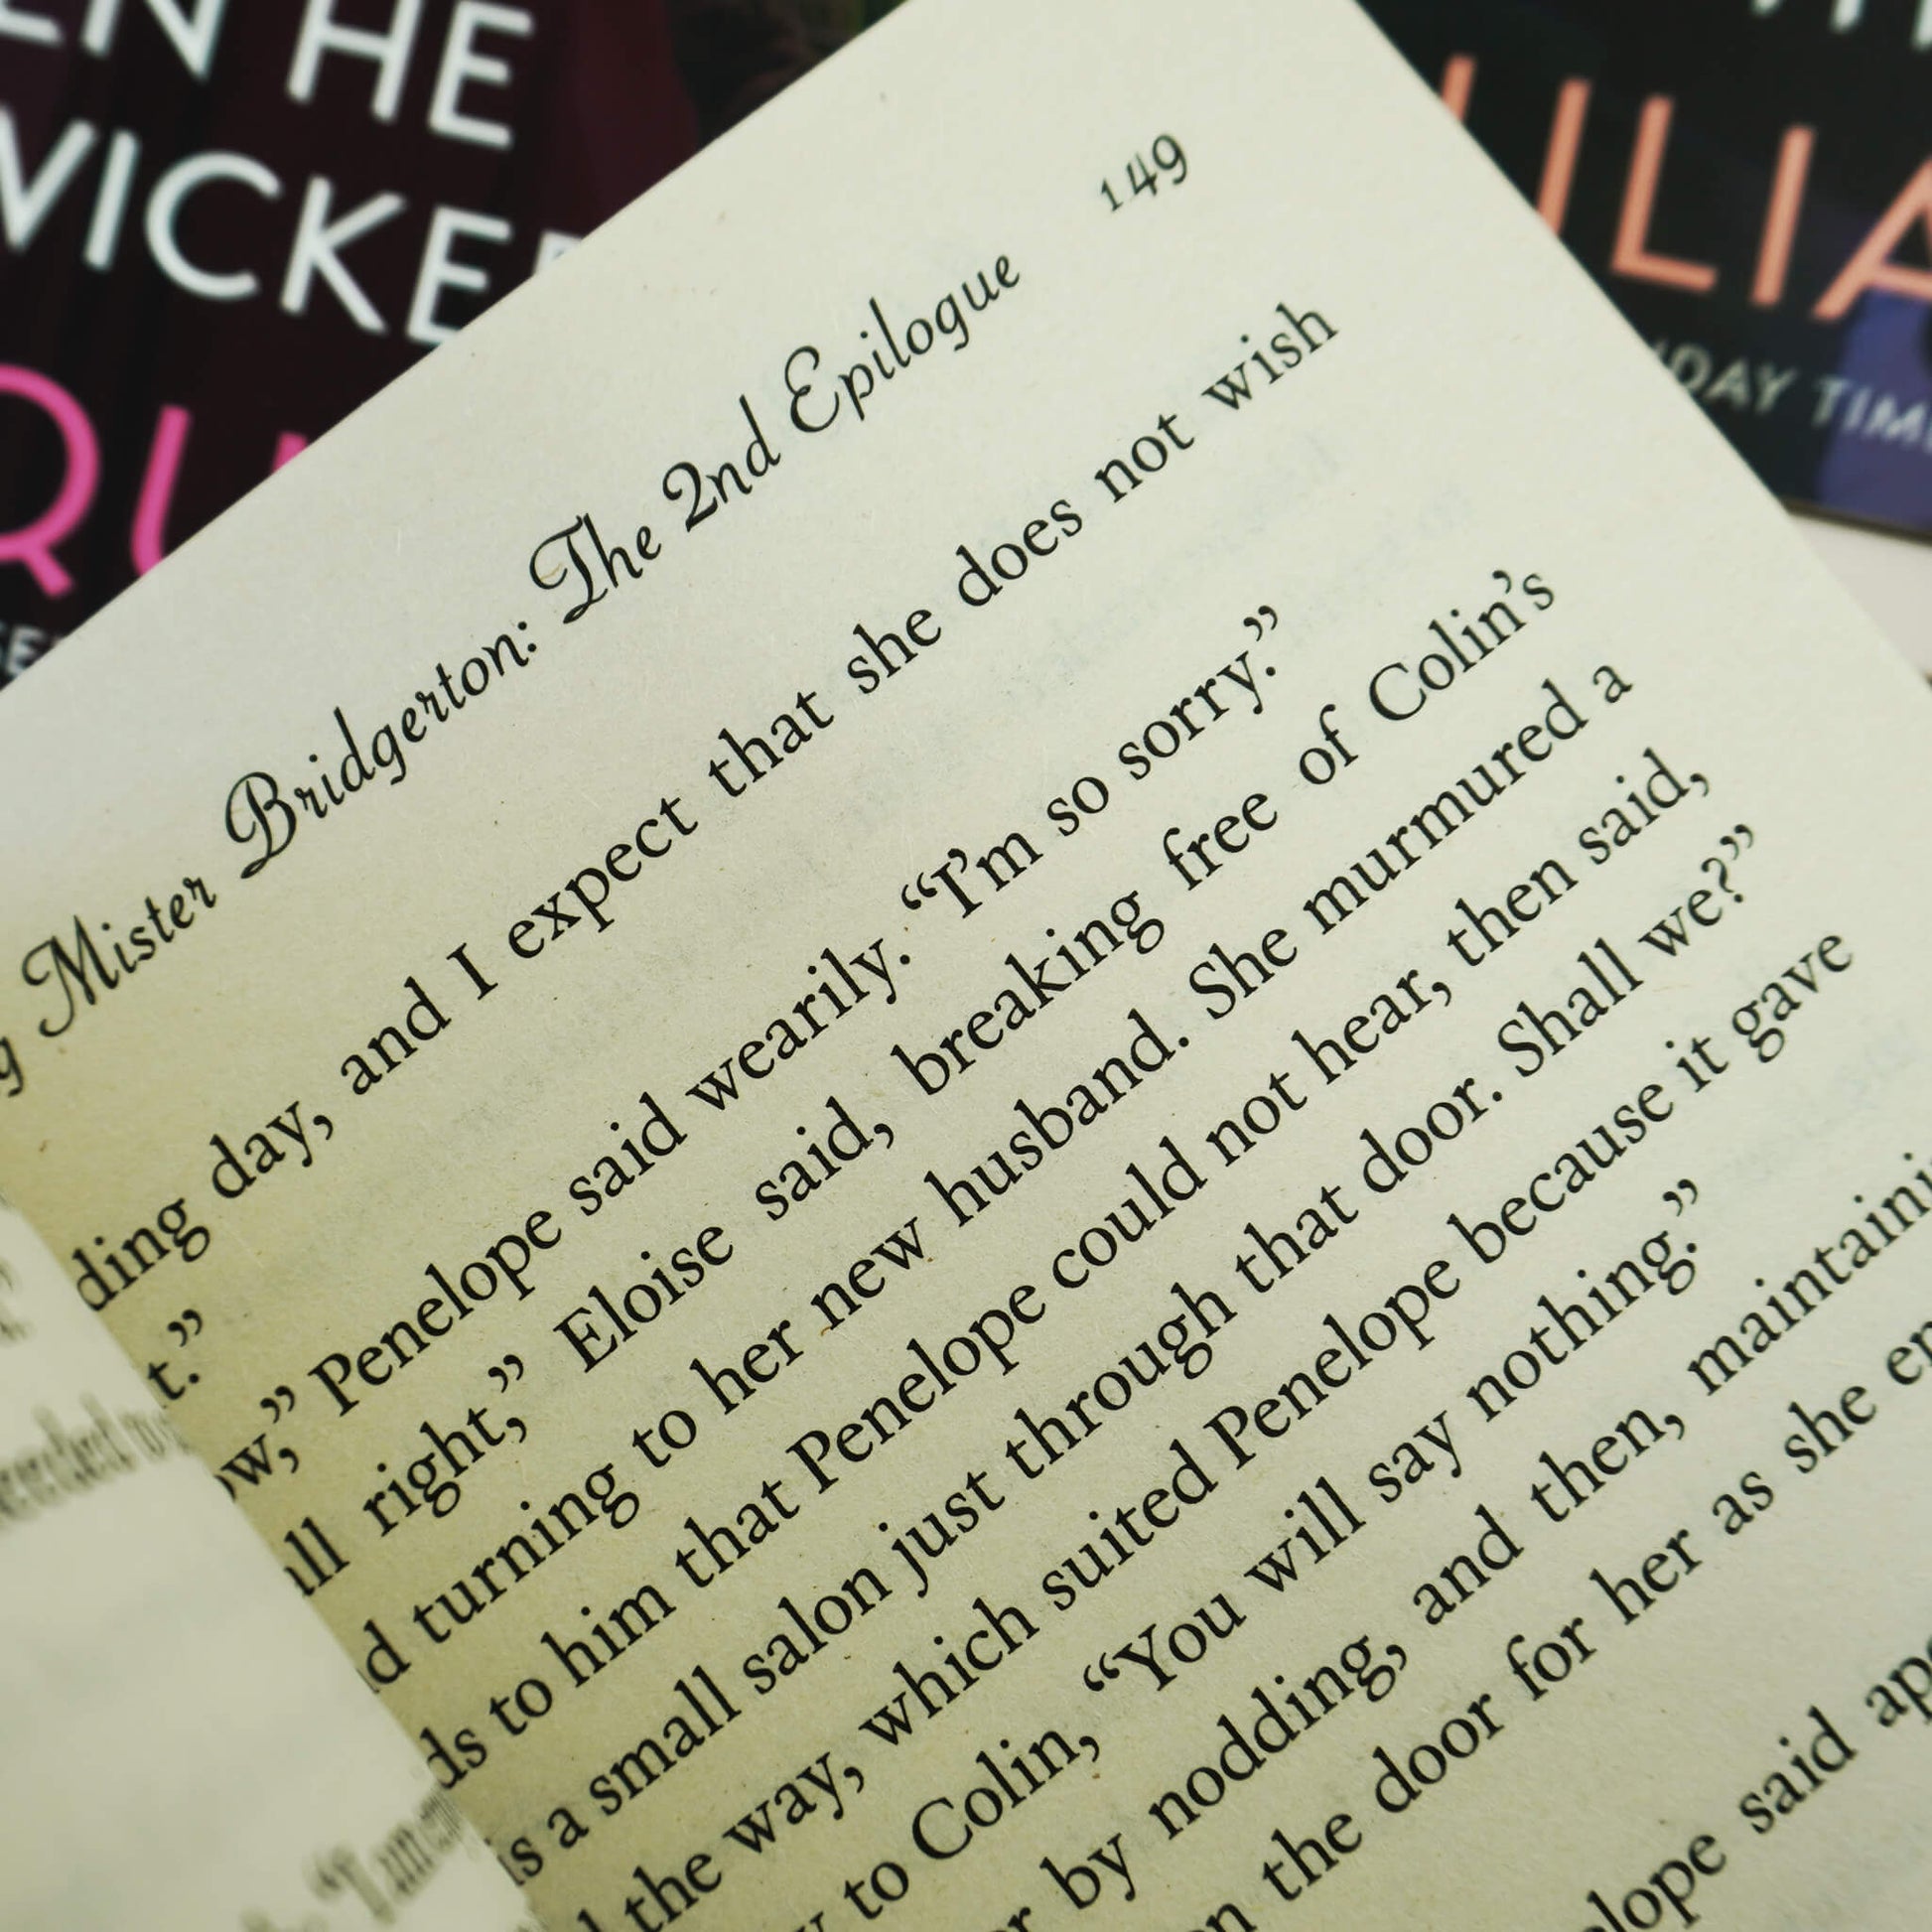 HE
149
Mister Bridgerton: The 2nd Epilogue
day, and I expect that she does not wish
Penelope said wearily. “I’m so sorry.”
right,” Eloise said, breaking free of Colin’s
turning to her new husband. She murmured a
to him that Penelope could not hear, then said,
is a small salon just through that door. Shall we?”
the way, which suited Penelope because it gave
to Colin, “You will say nothing.”
by nodding, and then,
the door for her as she
said